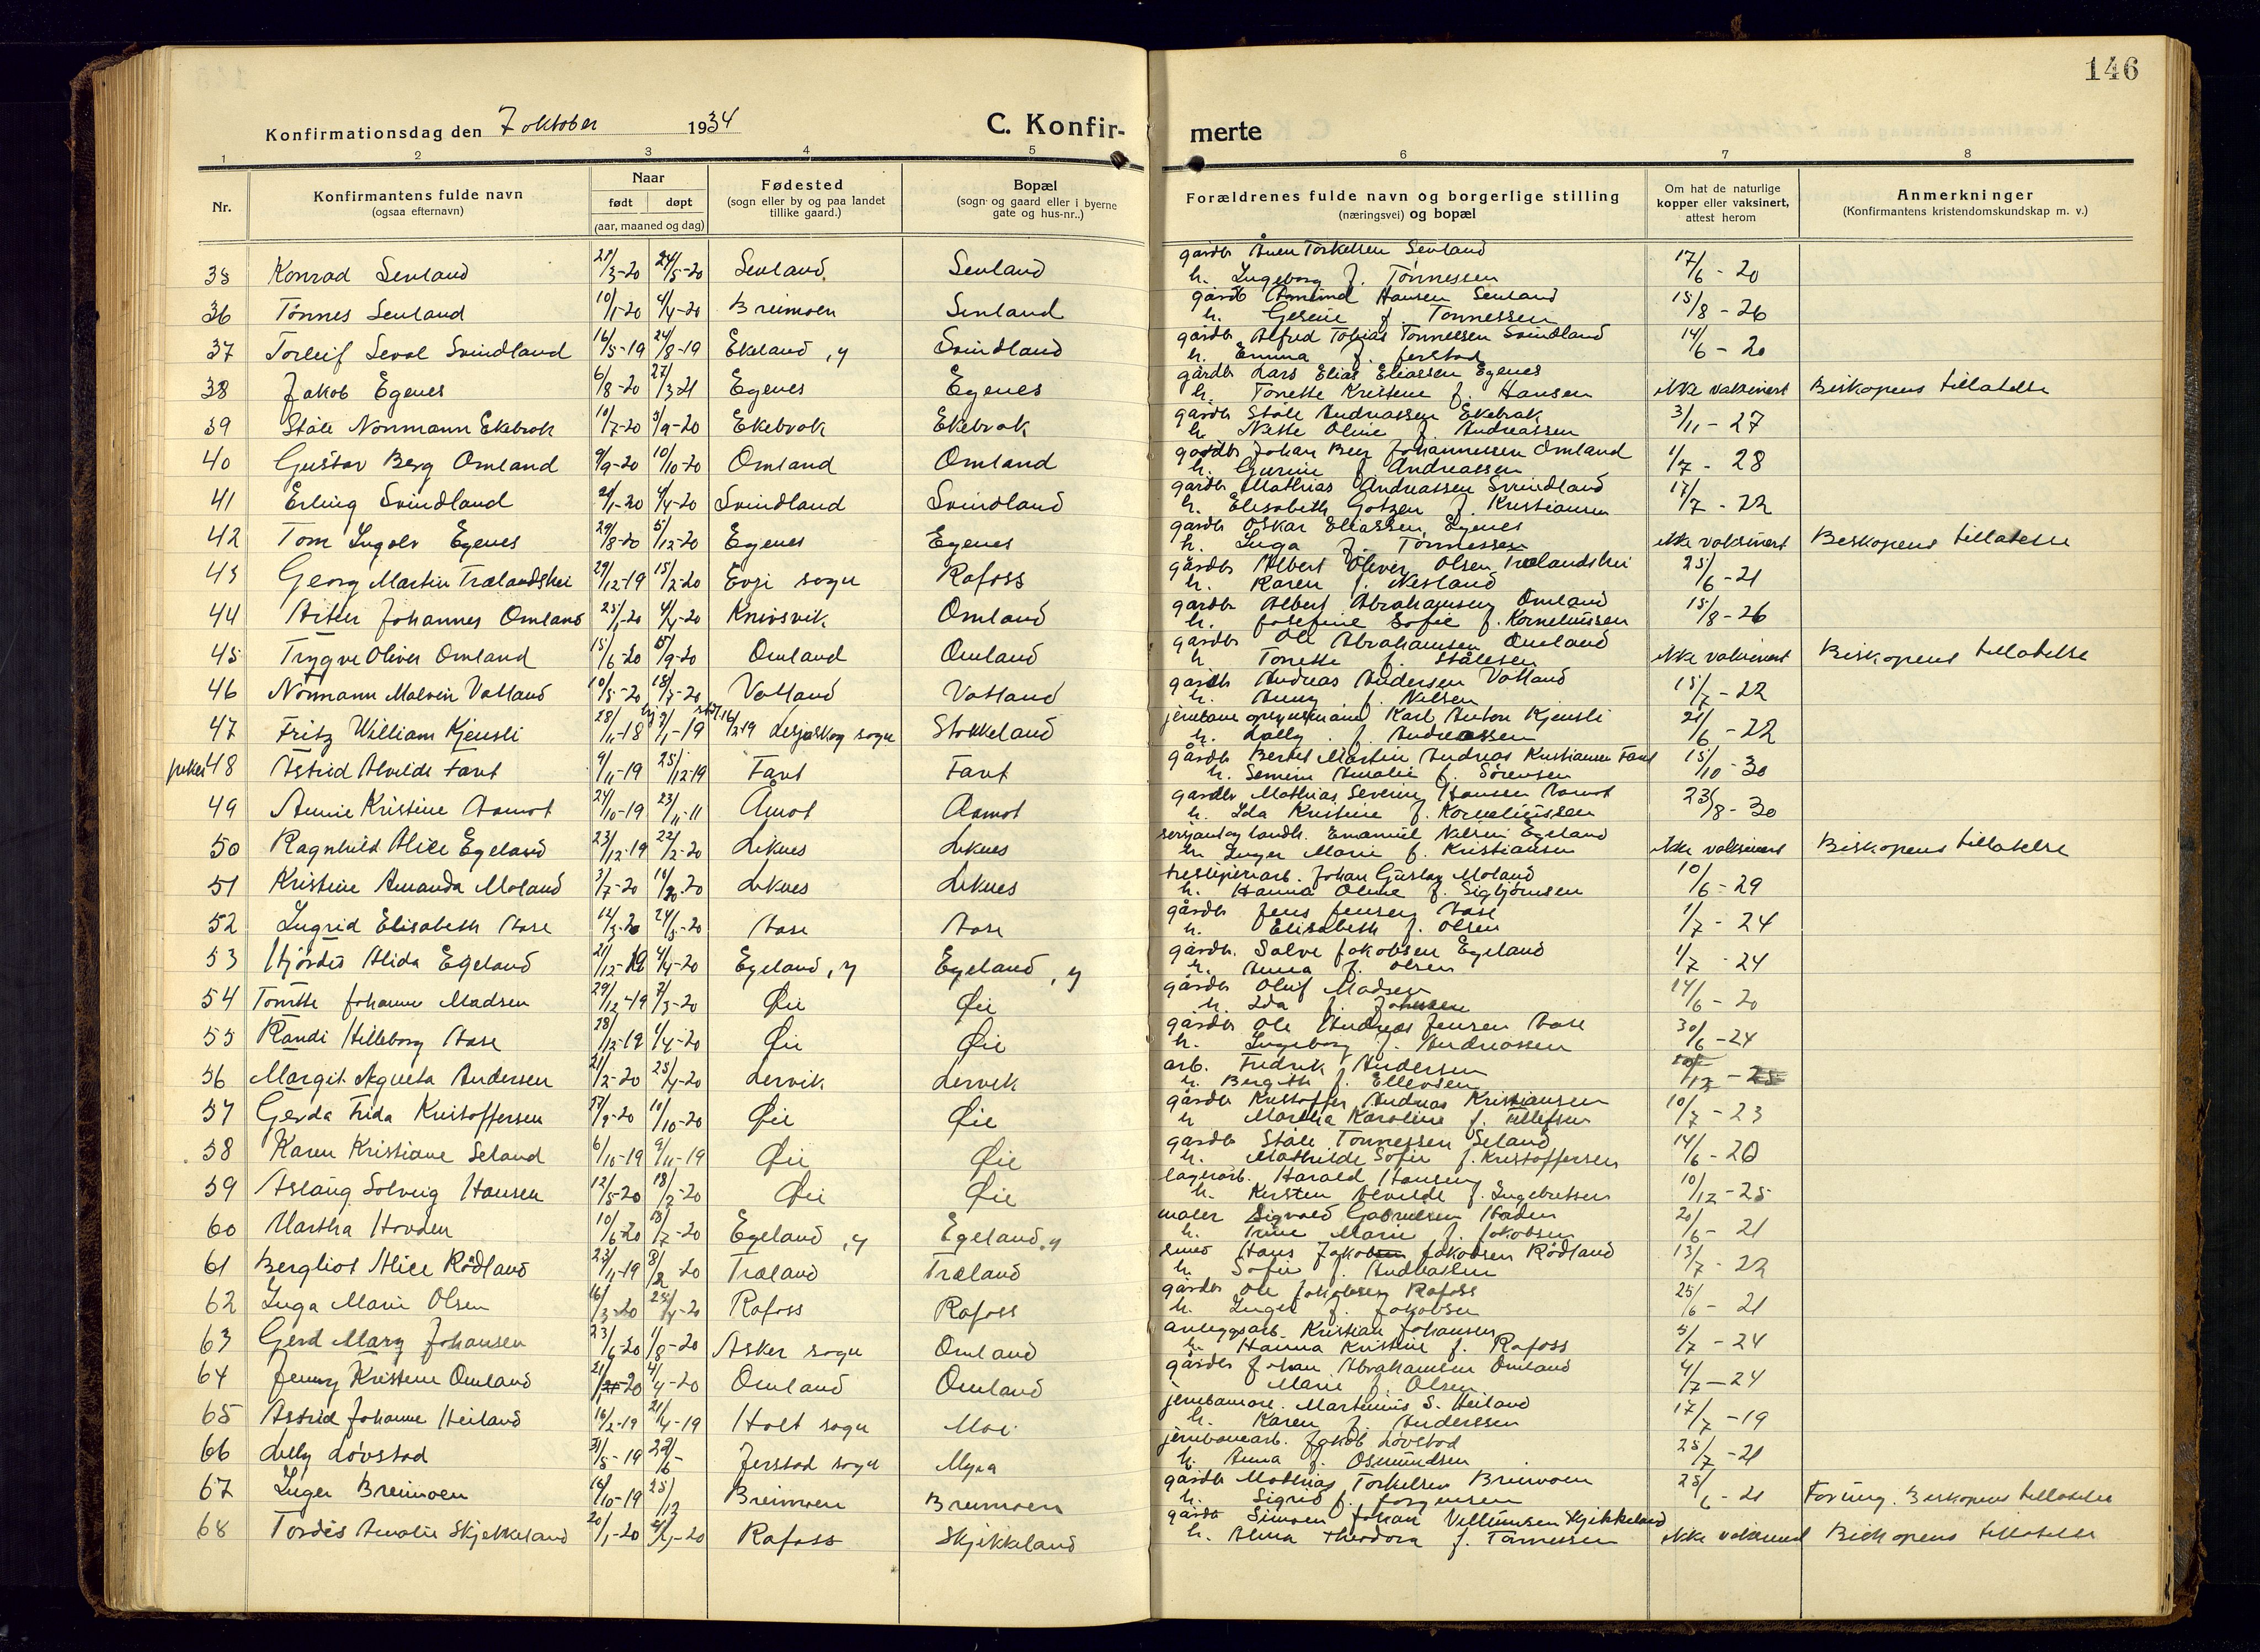 146
Konfirmationsdag den 7 oktober 1934
C. Konfir-
merte
1 2 3 4 5 6 7 8
Nr.
Konfirmantens fulde navn
(ogsaa efternavn)
Naar
født døpt
(aar, maaned og dag)
Fødested
(sogn eller by og paa landet
tillike gaard.)
Bopæl
(sogn og gaard eller i byerne
gate og hus-nr..)
Forældrenes fulde navn og borgerlige stilling
(næringsvei) og bopæl
Om hat de naturlige
kopper eller vaksinert,
attest herom
Anmerkninger
(Konfirmantens kristendomskundskap m. v.)
gårdbr Torkelsen Senland
35 Konrad Senland 21/3-20 24/5-20 Senland Senland h. Ingeborg f. Tønnessen 17/6-20
gårdb Hansen Senland
36 Tønnes Senland 10/1-20 4/4-20 Breimoen Senland h. Gesine f. Tønnessen 15/8-26
gårdbr Alfred Tobias Tønnessen Svindland
37 Torleif Seval Svindland 16/5-19 24/8-19 Ekeland, y Svindland h. Emma f. Jerstad 14/6-20
gårdbr Lars Elias Eliassen Egenes
38 Jakob Egenes 6/8-20 27/3-21 Egenes Egenes h. Tonette Kristene f. Hansen ikke vaksinert Biskopens tillatelse
gårdbr Ståle Andreassen Ekebrok
39 Ståle Normann Ekebrok 10/7-20 5/9-20 Ekebrok Ekebrok h. Nette Oline f. Andreassen 3/11-27
gårdbr Johan Berg Johannessen Omland
40 Gustav Berg Omland 9/9-20 10/10-20 Omland Omland h. Gurine f. Andreassen 1/7-28
gårdbr Mathias Andreassen Svindland
41 Erling Svindland 21/1-20 4/4-20 Svindland Svindland h. Elisabeth Gotzen f. Kristiansen 17/7-22
gårdbr Oskar Eliassen Egenes
42 Tom Ingolv Egenes 29/8-20 5/12-20 Egenes Egenes h. Inga f. Tønnessen ikke vaksinert Biskopens tillatelse
gårdbr Albert Oliver Olsen Trælandshei
43 Georg Martin Trælandshei 29/12-19 15/2-20 Evje sogn Rafoss h. Karen f. Nesland 25/6-21
gårdbr Albert Abrahamsen Omland
44 Arthur Johannes Omland 25/1-20 4/4-20 Knivsvik Omland h. Josefine Sofie f. Korneliussen 15/8-26
gårdbr Ole Abrahamsen Omland
45 Trygve Oliver Omland 15/6-20 5/9-20 Omland Omland h. Tonette f. Stålesen ikke vaksinert Biskopens tillatelse
gårdb Andreas Andersen Vatland
46 Normann Malvin Vatland 10/5-20 18/7-20 Vatland Vatland h. Anny f. Nilsen 15/7-22
Karl Anton Kjensli
47 Fritz William Kjensli 28/11-18 3/1-19 Lesjaskog sogn Stokkeland h. Lally f. Andreassen 21/6-22
gårdbr Bertel Martin Andreas Kristiansen Tavt
piker 48 Astrid Alvilde Tavt 9/11-19 25/12-19 Tavt Tavt h. Semine Amalie f. Sørensen 15/10-30
gårdbr Mathias Severin Hansen Aamot
49 Annie Kristine Aamot 24/10-19 23/11-11 Åmot Aamot h. Ida Kristine f. Korneliussen 23/8-30
sersjant og landh. Emanuel Nilsen Egeland
50 Ragnhild Alice Egeland 23/12-19 22/2-20 Liknes Liknes h. Inger Marie f. Kristiansen ikke vaksinert Biskopens tillatelse
tresliperiarb. Johan Gustav Moland
51 Kristine Amanda Moland 3/7-20 Liknes Liknes h. Hanna Oline f. Sigbjørnsen 10/6-29
gårdbr Jens Jensen Aase
52 Ingrid Elisabeth Aase 12/3-20 24/5-20 Aase Aase h. Elisabeth f. Olsen 1/7-24
gårdbr. Salve Jakobsen Egeland
53 Hjørdis Alida Egeland 21/12-19 4/4-20 Egeland, y Egeland, y h. Anna f. Olsen 1/7-24
gårdbr Oluf Madsen
54 Tonette Johanne Madsen 29/12-19 7/3-20 Øie Øie h. Ida f. 14/6-20
gårdbr Ole Andreas Jensen Aase
55 Randi Hilleborg Aase 28/12-19 4/4-20 Øie Øie h. Ingeborg f. Andreassen 30/6-24
arb. Fredrik Andersen
56 Margit Agneta Andersen 21/2-20 25/4-20 Lervik Lervik h. Bergith f. Ellevsen
gårdbr Kristoffer Andreas Kristiansen
57 Gerda Frida Kristoffersen 17/9-20 10/10-20 Øie Øie h Martha Karoline f. Tellefsen 10/7-23
gårdbr Ståle Tønnessen Seland
58 Karen Kristiane Seland 6/10-19 9/11-19 Øie Øie h. Mathilde Sofie f. Kristoffersen 14/6-20
lagerarb. Harald Hansen
59 Aslaug Solveig Hansen 12/5-20 18/2-20 Øie Øie h. Kirsten Alvilde f. Ingebretsen 10/12-25
maler Sigvald Gabrielsen Hovden
60 Martha Hovden 10/6-20 18/7-20 Egeland, y Egeland, y h. Trine Marie f. Jakobsen 20/6-21
smed Hans Jakobsen Jakobsen Rødland
61 Bergliot Alice Rødland 23/11-19 8/2-20 Træland Træland h. Sofie f. Andreassen 13/7-22
gårdbr Ole Jakobsen Rafoss
62 Inga Marie Olsen 16/3-20 25/4-20 Rafoss Rafoss h. Inger f. Jakobsen 25/6-21
anleggsarb. Kristian Johansen
63 Gerd Mary Johansen 23/6-20 1/8-20 Asker sogn Omland h. Hanna Kristine f. Rafoss 5/7-24
gårdbr Johan Abrahamsen Omland
64 Jenny Kristine Omland 4/4-20 Omland Omland Marie f. Olsen 4/7-24
Martinius S. Heiland
65 Astrid Johanne Heiland 16/2-19 21/4-19 Holt sogn Moi h. Karen f. Anderssen 17/7-19
jernbanearb. Jakob Løvstad
66 Lilly Løvstad 31/5-19 Jerstad sogn Myra h. Anna f. Osmundsen 25/7-21
gårdbr Mathias Torkelsen Breimoen
67 Inger Breimoen 16/10-19 25/12 Breimoen Breimoen h. Sigrid f. Jørgensen 25/6-21 For ung. Biskopens tillatelse
gårdbr Simon Johan Villumsen Skjekkeland
68 Tordis Amalie Skjekkeland 20/1-20 4/4-20 Rafoss Skjekkeland h. Alma Theodora f. Tønnessen ikke vaksinert Biskopens tillatelse